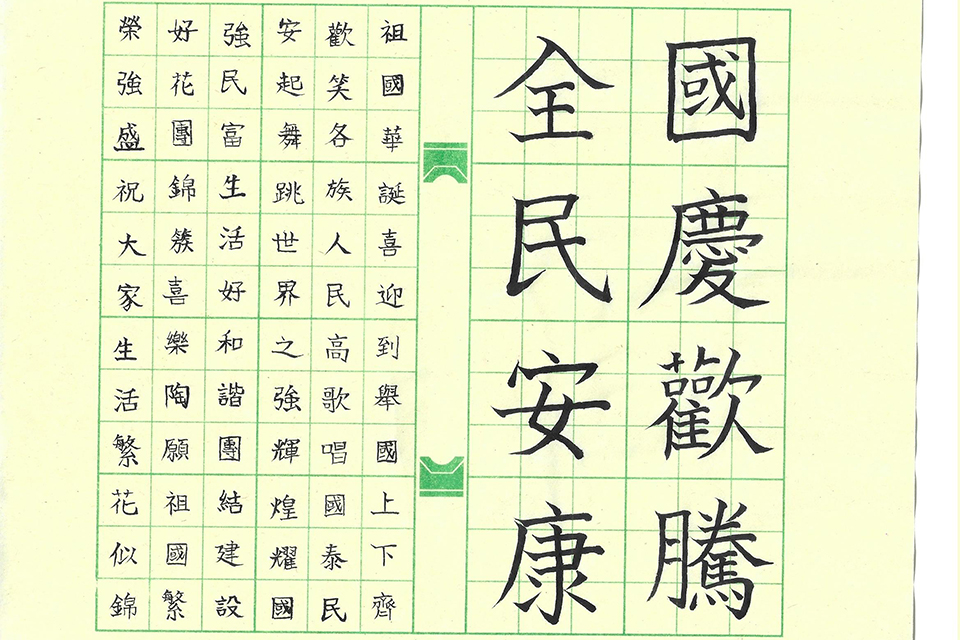 國慶歡騰
全民安康
祖國華誕喜迎到舉國上下齊
歡笑各族人民高歌唱國泰民
安起舞跳世界之強輝煌耀國
強民富生活好和諧團結建設
好花團錦簇喜樂陶願祖國繁
榮強盛祝大家生活繁花似錦